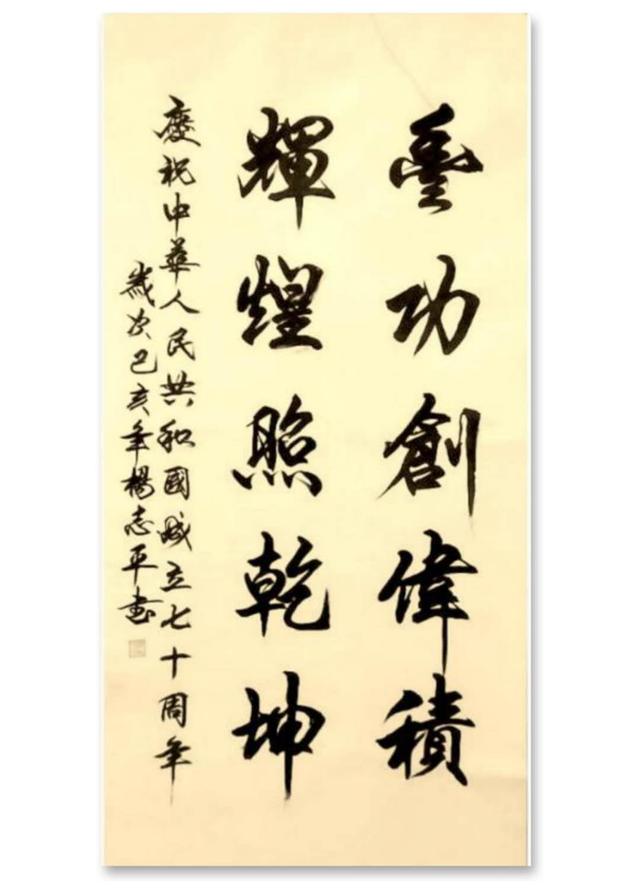 豐功創偉積
輝煌照乾坤
慶祝中華人民共和國成立七十周年
歲次己亥年楊志平書